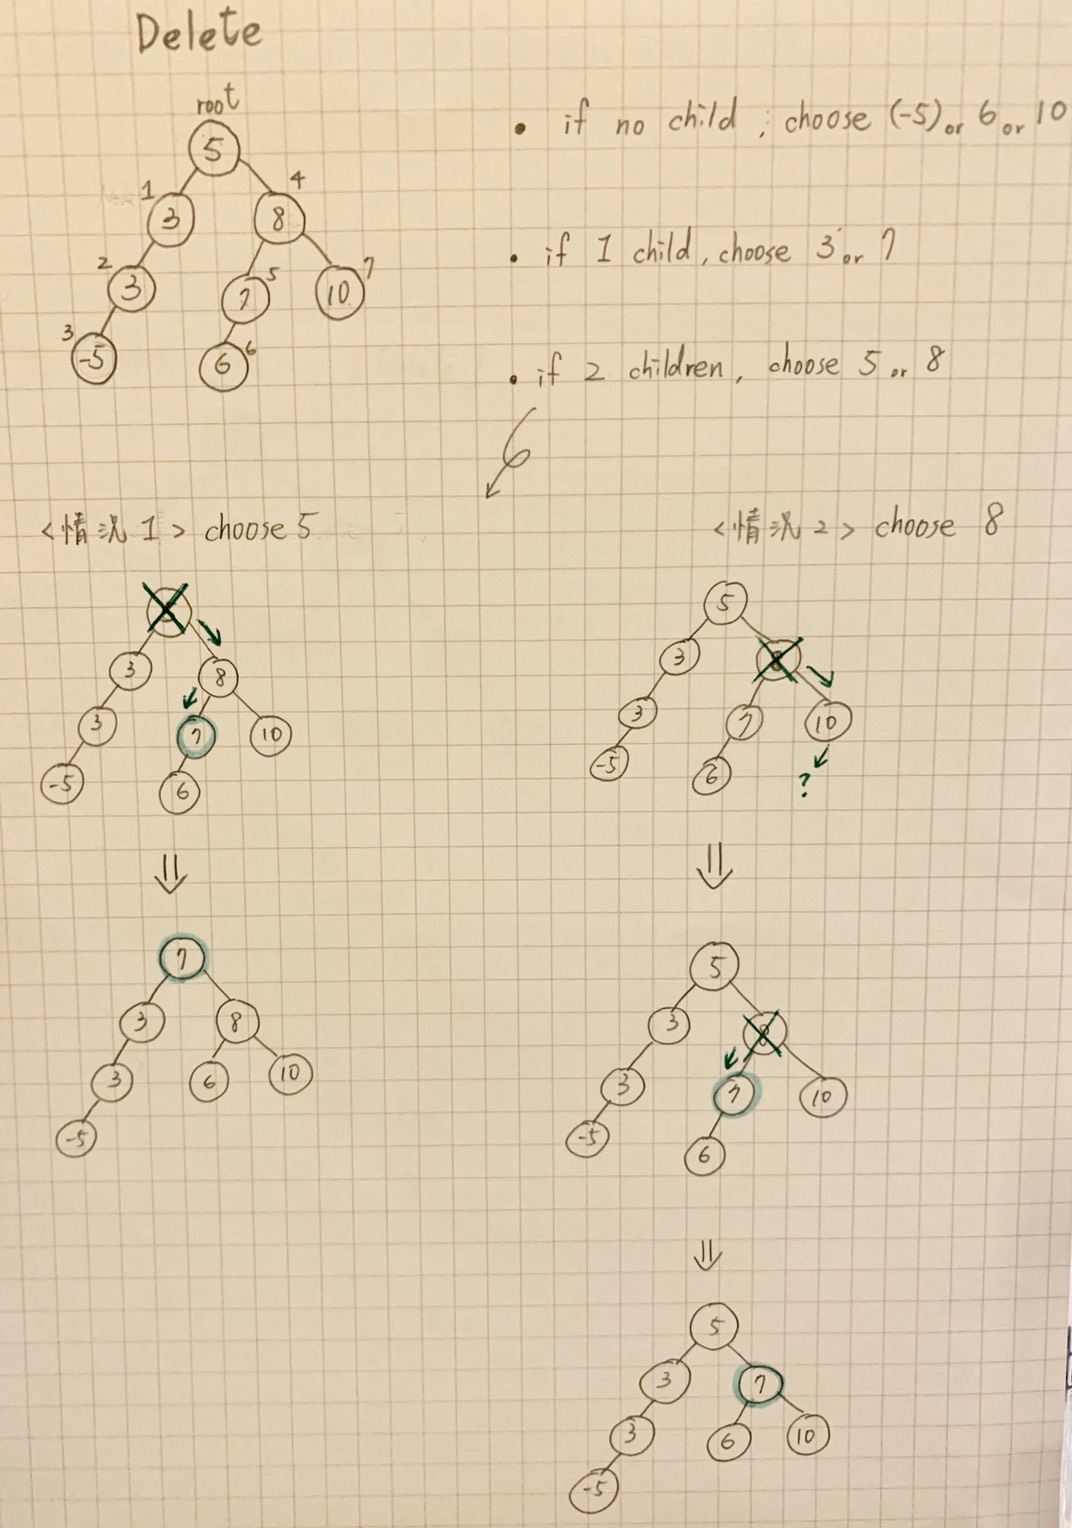 Delete
root
5
1 4
3 8
2 5 7
3 7 10
3 6
-5 6
• if no child ; choose (-5) or 6 or 10
• if 1 child, choose 3 or 7
• if 2 children, choose 5 or 8
<情況 1> choose 5
3 8
3 7 10
-5 6
7
3 8
3 6 10
-5
<情況 2> choose 8
5
3 8
3 7 10
-5 6 ?
5
3 8
3 7 10
-5 6
5
3 7
3 6 10
-5